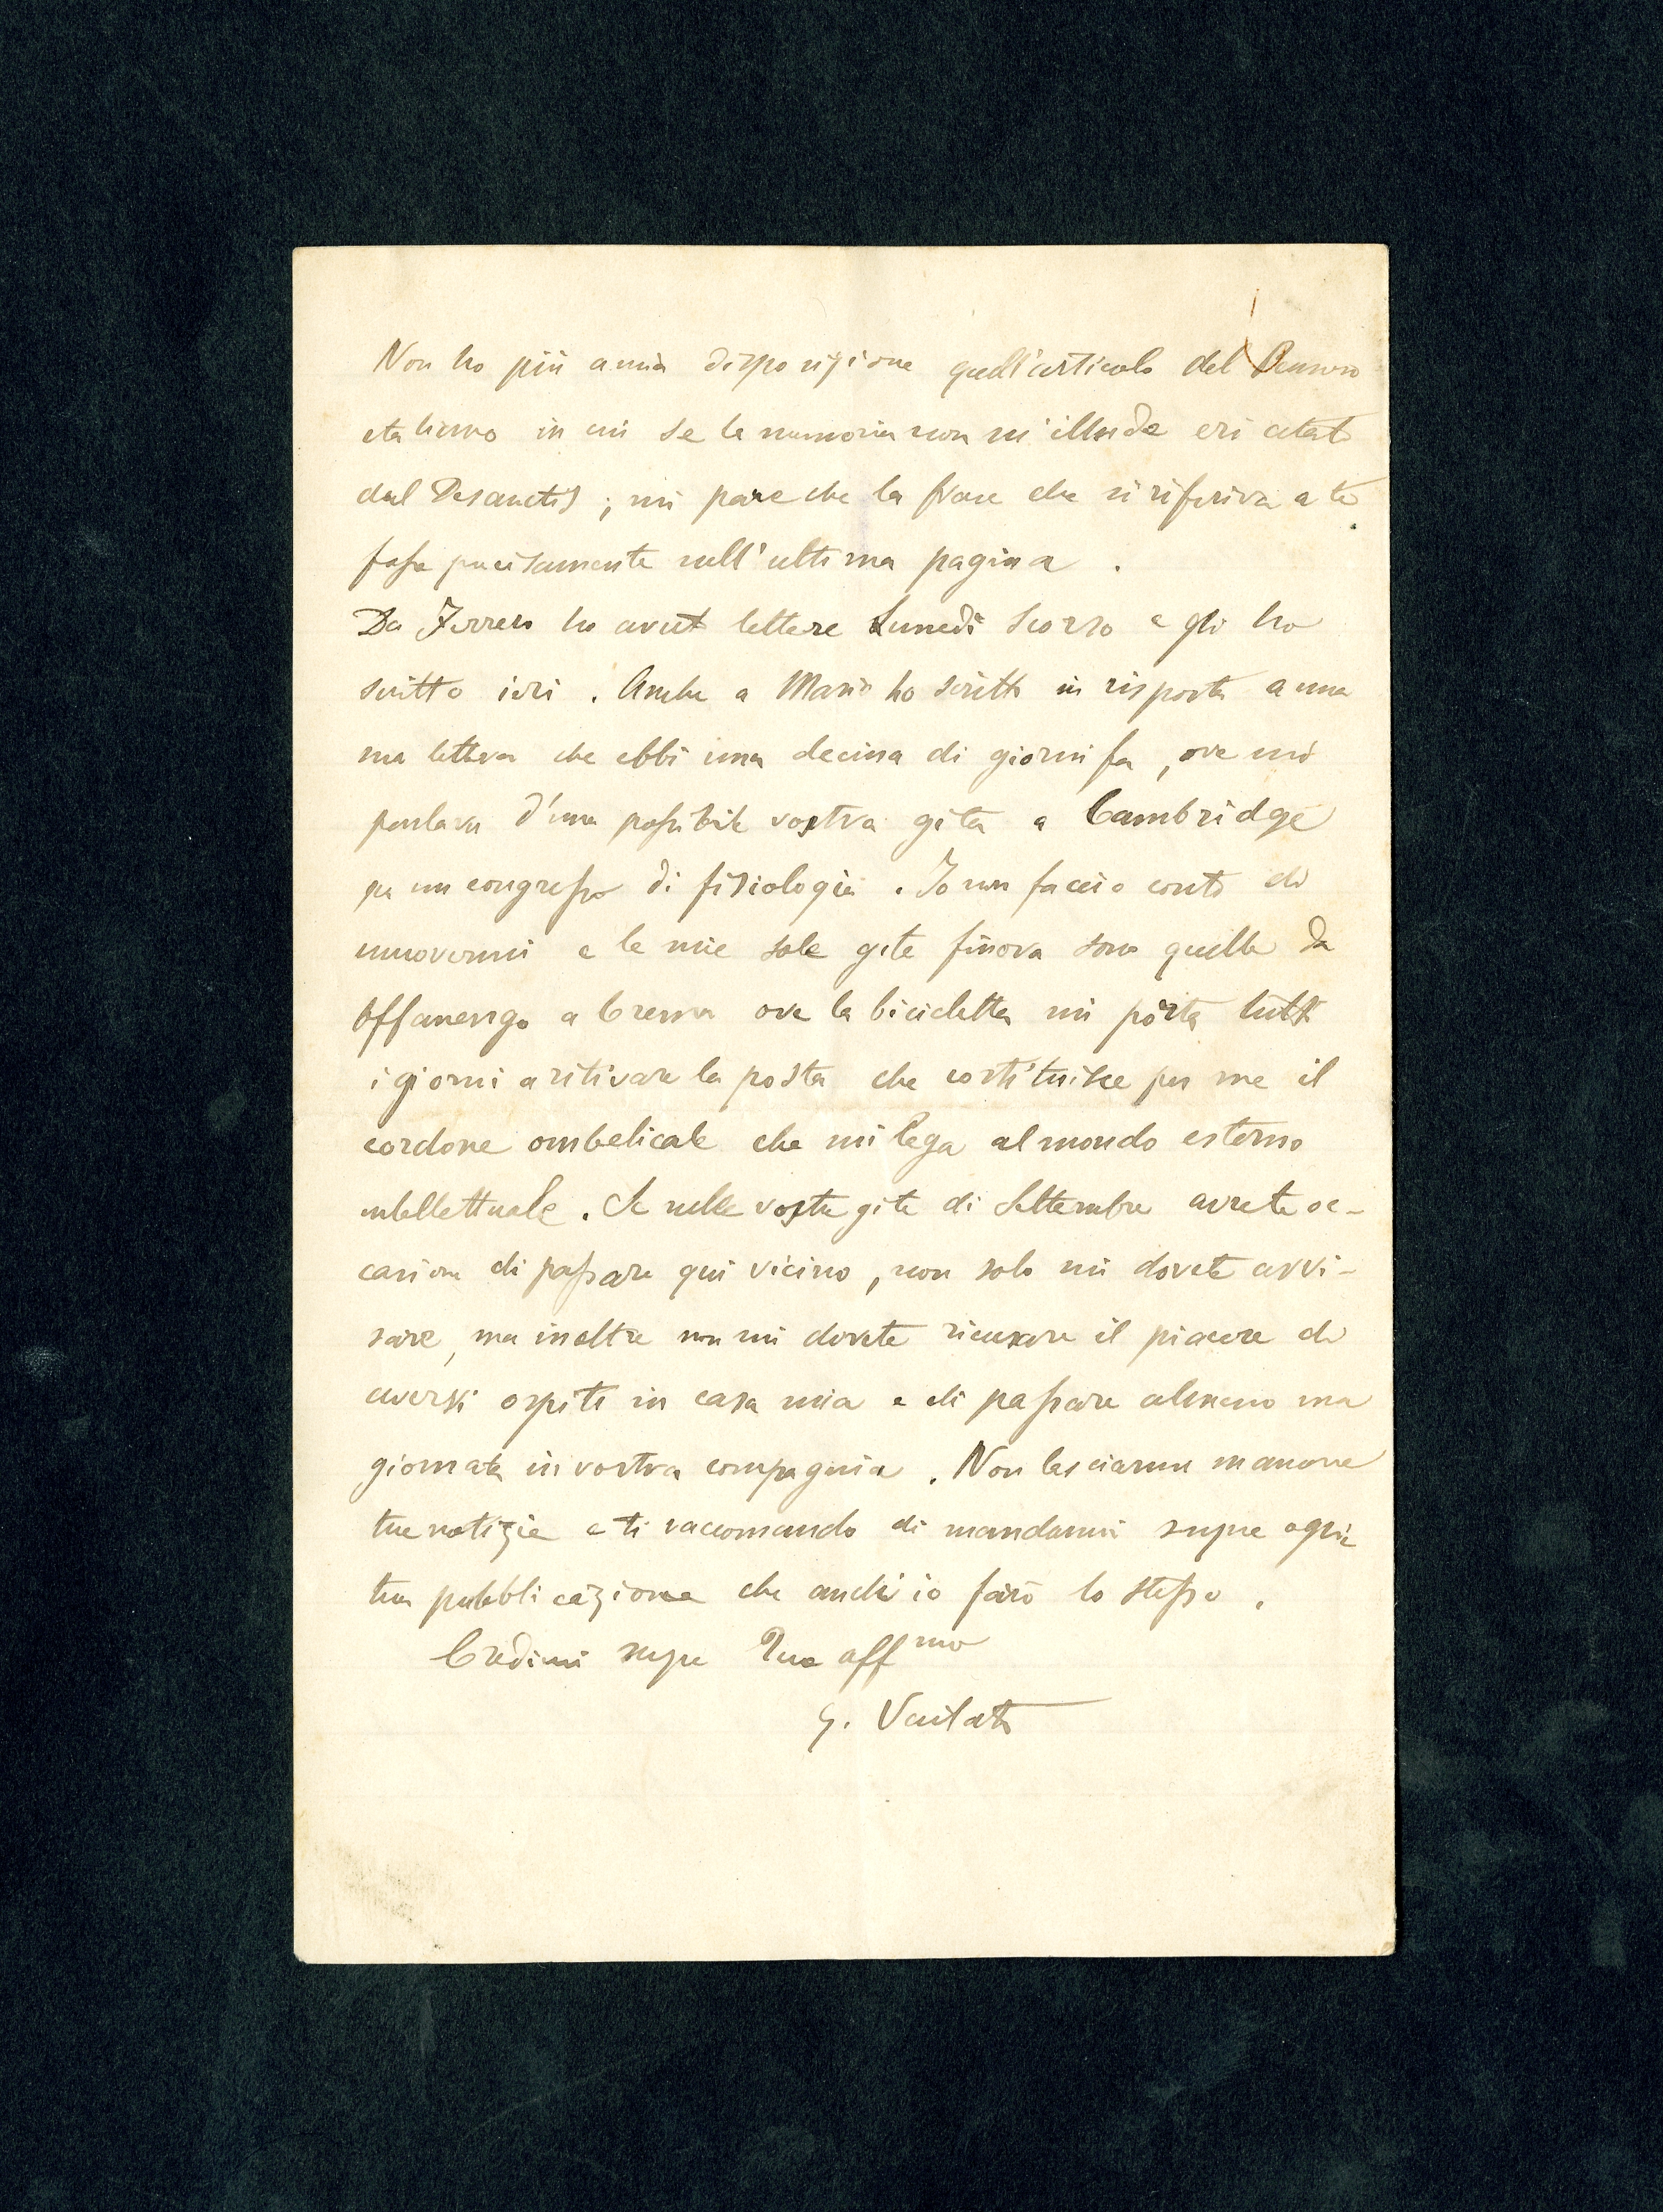 Non ho più a mia disposizione quell'articolo del Pensiero
italiano in cui se la memoria non m'illude eri citato
dal Desanctis ; mi pare che la frase che si riferiva a te
fosse precisamente nell'ultima pagina .
Da Ferrero ho avuto lettere Lunedì scorso e gli ho
scritto ieri . Anche a Mario ho scritto in risposta a una
sua lettera che ebbi una decina di giorni fa , ove mi
parlava d'una possibile vostra gita a Cambridge
per un congresso di fisiologia . Io non faccio conto di
muovermi e le mie sole gite finora sono quelle da
Offanengo a Crema ove la bicicletta mi porta tutti
i giorni a ritirare la posta che costituisce per me il
cordone ombelicale che mi lega al mondo esterno
intellettuale . Se nelle vostre gite di Settembre avrete oc-
casione di passare qui vicino , non solo mi dovete avvi-
sare , ma inoltre non mi dovete ricusare il piacere di
avervi ospiti in casa mia e di passare almeno una
giornata in vostra compagnia . Non lasciarmi mancare
tue notizie e ti raccomando di mandarmi sempre ogni
tua pubblicazione che anch'io farò lo stesso .
Credimi sempre Tuo aff mo
G. Vailati